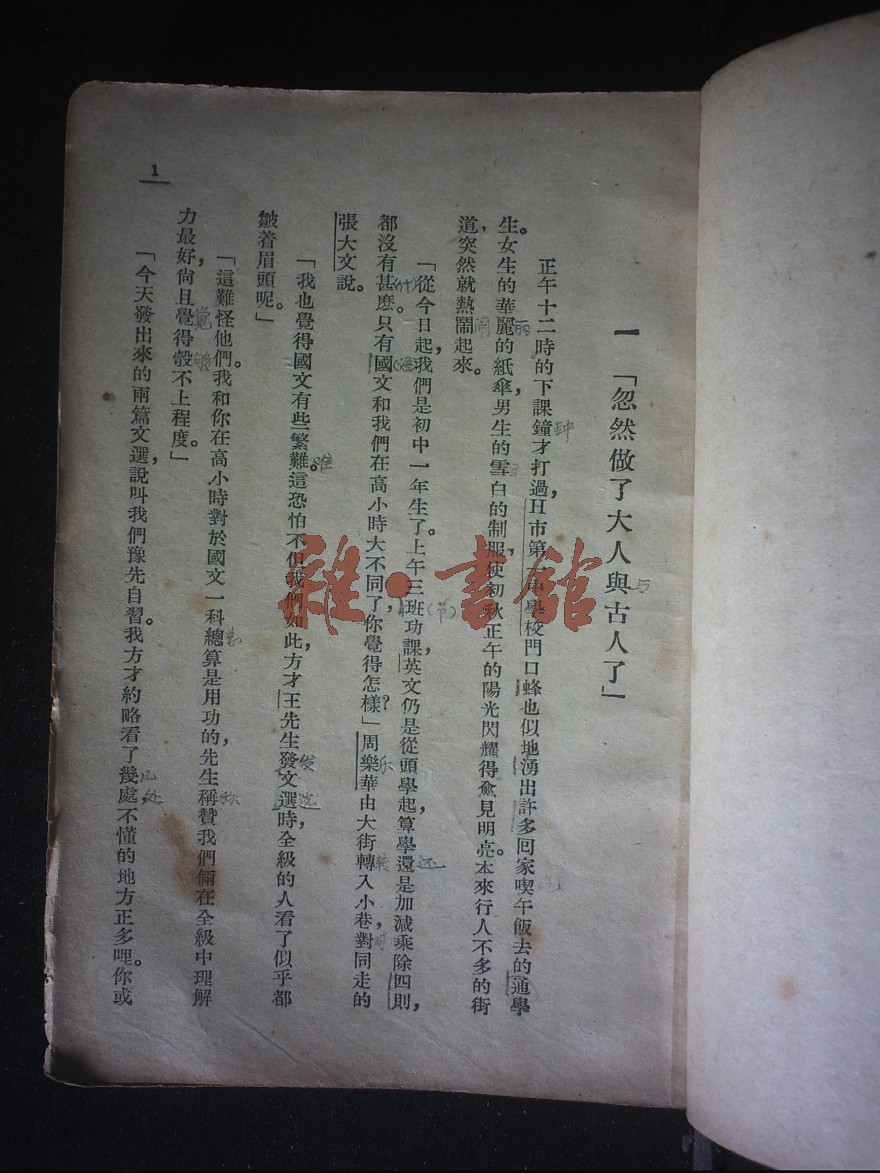 一 「忽然做了大人與古人了」
正午十二時的下課鐘才打過，H市第一中學校門口蜂也似地湧出許多回家喫午飯去的通學
生。女生的華麗的紙傘，男生的雪白的制服，使初秋正午的陽光閃耀得愈見明亮。本來行人不多的街
道，突然就熱鬧起來。
「從今日起，我們是初中一年生了。上午三班功課，英文仍是從頭學起，算學還是加減乘除四則，
都沒有甚麽。只有國文和我們在高小時大不同了，你覺得怎樣？」周樂華由大街轉入小巷，對同走的
張大文說。
「我也覺得國文有些繁難。這恐怕不但我們如此，方才王先生發文選時，全級的人看了似乎都
皺着眉頭呢。」
「這難怪他們。我和你在高小時對於國文一科總算是用功的，先生稱贊我們倆在全級中理解
力最好，尙且覺得彀不上程度。」
「今天發出來的兩篇文選，說叫我們豫先自習。我方才約略看了幾處，不懂的地方正多哩。你或
1
钟
与
丽
闹
难
觉
够
总
称
发
选
乐
转
对
还
(节)
(什)
几处
雜·書館